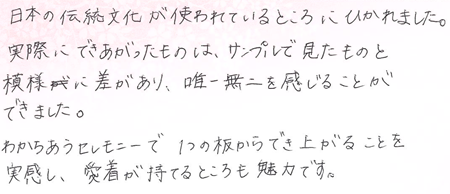 日本の伝統文化が使われているところにひかれました。
実際にできあがったものは、サンプルで見たものと
模様に差があり、唯一無二を感じることが
できました。
わかちあうセレモニーで 1つの板からでき上がることを
実感し、愛着が持てるところも魅力です。